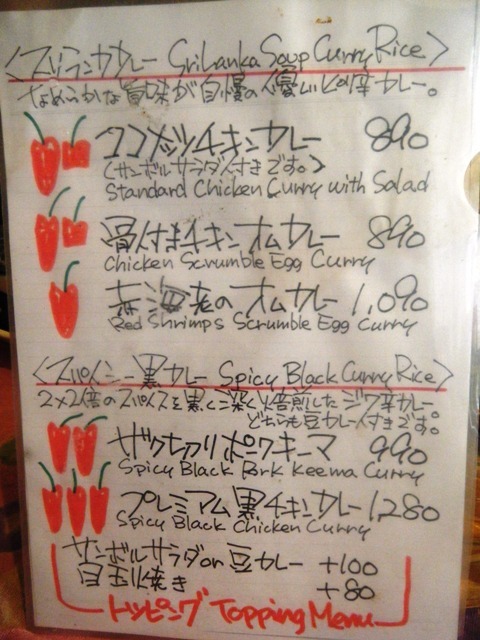 〈スリランカカレー Sri Lanka Soup Curry Rice〉
なめらかな旨味が自慢の優しい辛カレー。
ココナッツチキンカレー 890
(サンボルサラダ付きです。)
Standard Chicken Curry with Salad
骨付きチキンオムカレー 890
Chicken Scrumble Egg Curry
赤海老のオムカレー 1,090
Red Shrimps Scrumble Egg Curry
〈スパイシー黒カレー Spicy Black Curry Rice〉
2×2倍のスパイスを黒く深く焙煎したジワ辛カレー。
どちらも豆カレー付きです。
ザクロ入りポークキーマ 990
Spicy Black Pork Keema Curry
プレミアム黒チキンカレー 1,280
Spicy Black Chicken Curry
サンボルサラダor豆カレー +100
目玉焼き +80
トッピング Topping Menu